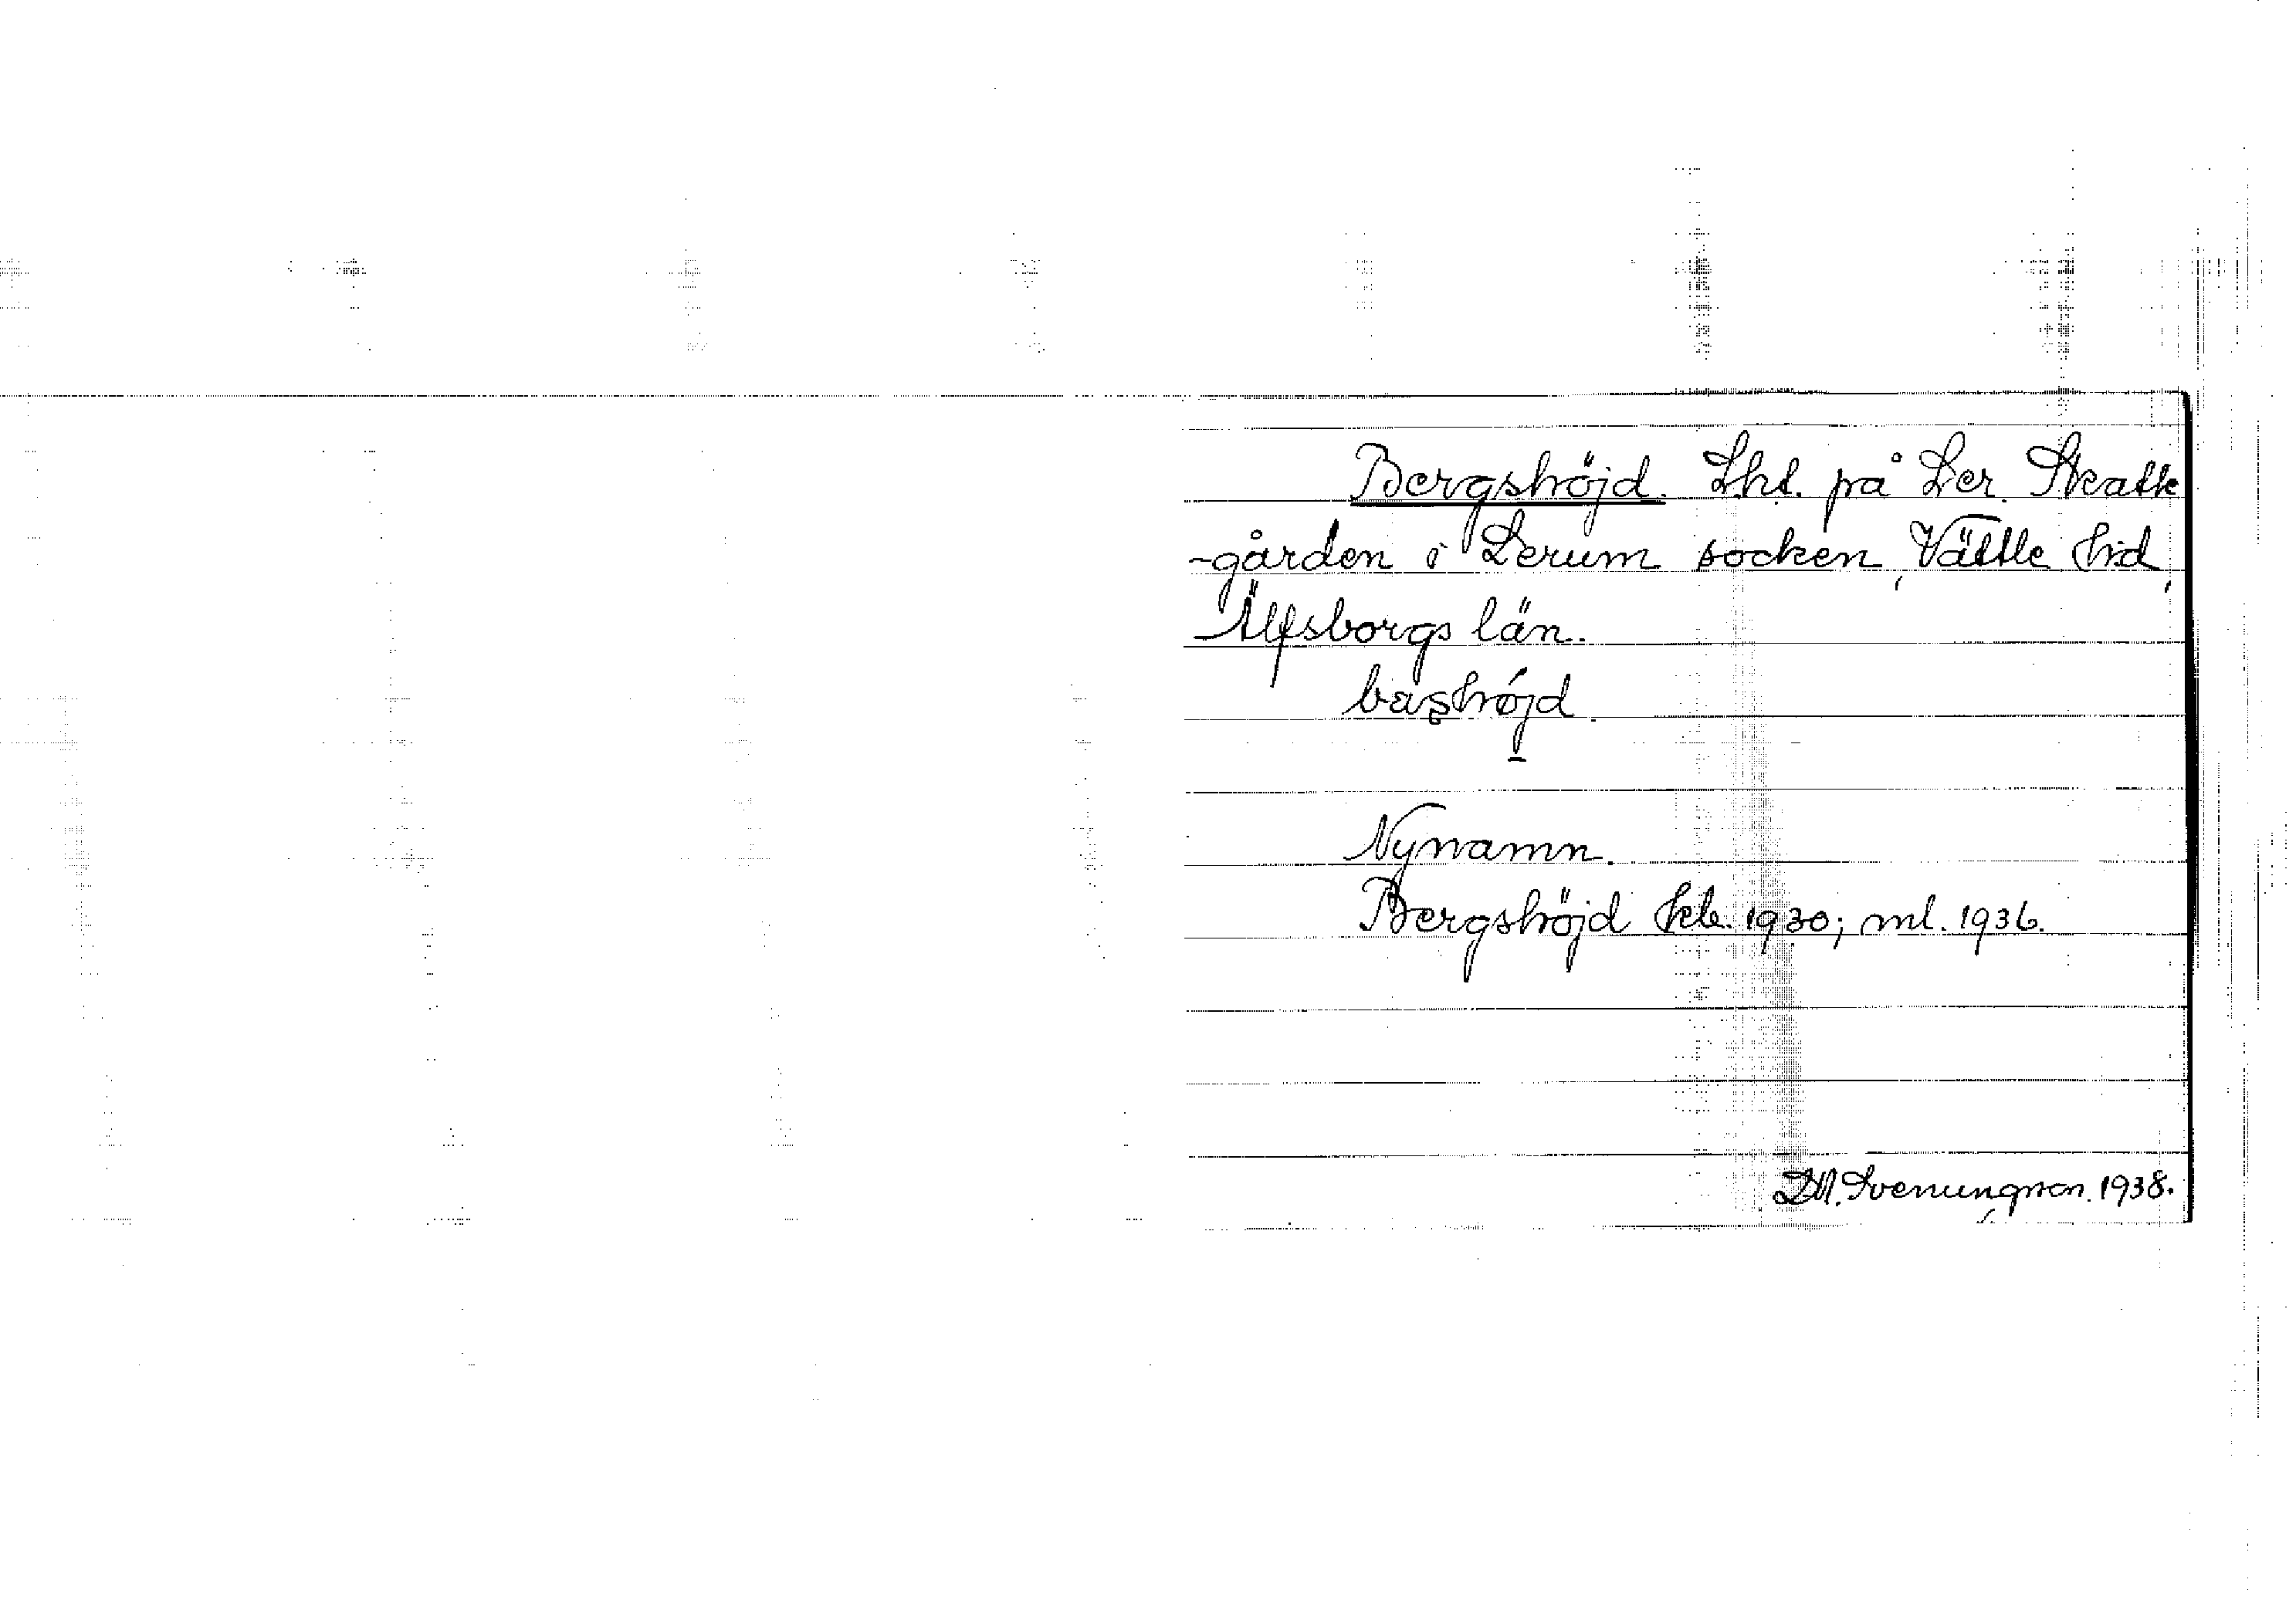 Bergshöjd. Lht. på Ler. Skatte
-gården i Lerum socken, Vättle hd,
Älfsborgs län.
Nynamn.
Bergshöjd hkb. 1930; ml. 1936.
D.M. Svenungsson. 1938.